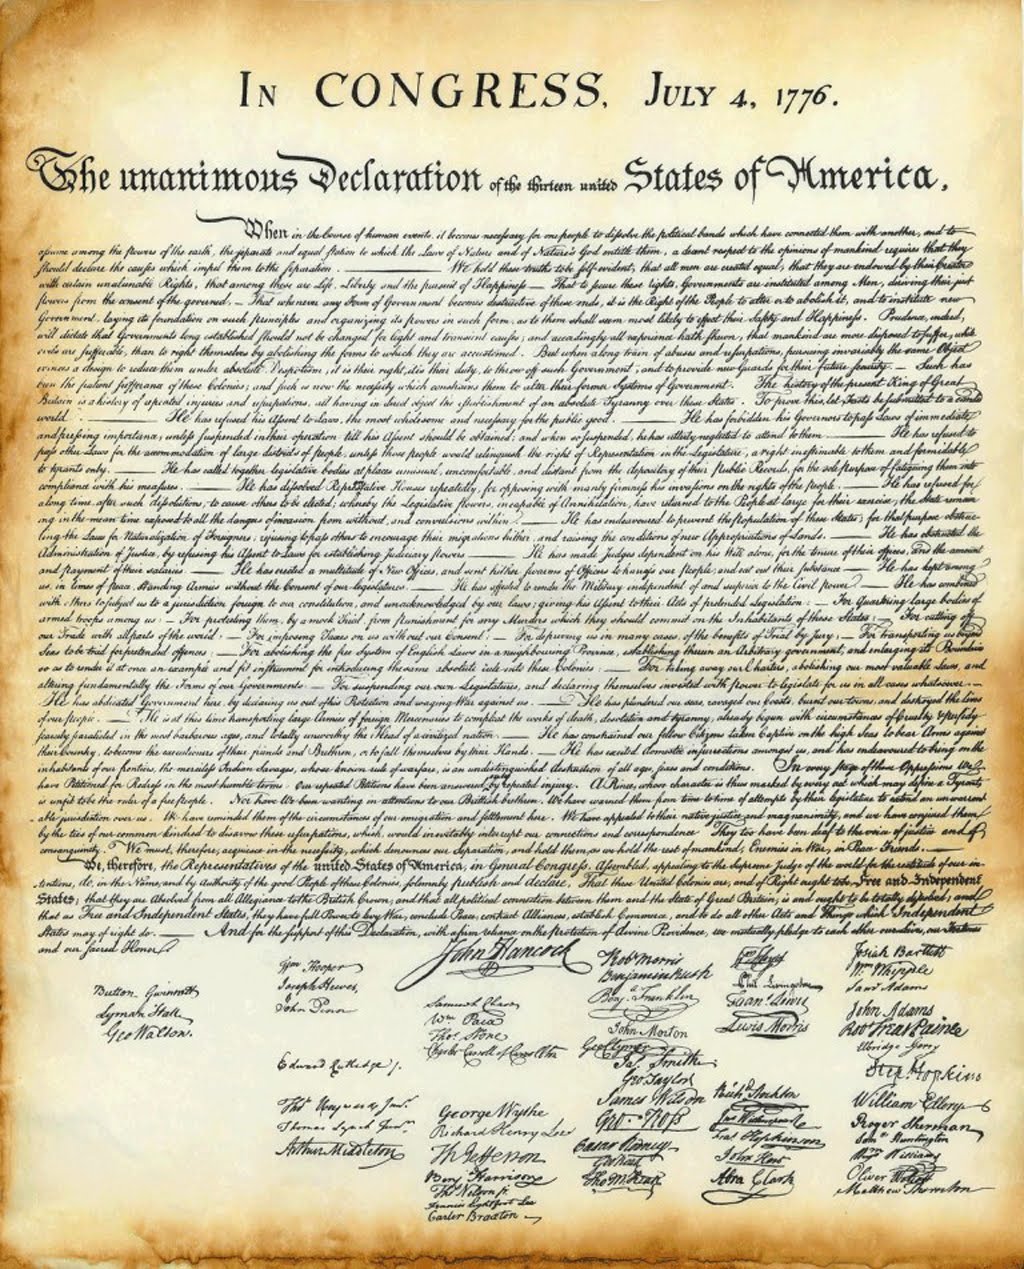 IN CONGRESS, JULY 4, 1776.
The unanimous Declaration of the thirteen united States of America,
When in the Course of human events, it becomes necessary for one people to dissolve the political bands which have connected them with another, and to
assume among the powers of the earth, the separate and equal station to which the Laws of Nature and of Nature's God entitle them, a decent respect to the opinions of mankind requires that they
should declare the causes which impel them to the separation. — We hold these truths to be self-evident, that all men are created equal, that they are endowed by their Creator
with certain unalienable Rights, that among these are Life, Liberty and the pursuit of Happiness — That to secure these rights, Governments are instituted among Men, deriving their just
powers from the consent of the governed, — That whenever any Form of Government becomes destructive of these ends, it is the Right of the People to alter or to abolish it, and to institute new
Government, laying its foundation on such principles and organizing its powers in such form, as to them shall seem most likely to effect their Safety and Happiness. Prudence, indeed,
will dictate that Governments long established should not be changed for light and transient causes; and accordingly all experience hath shewn, that mankind are more disposed to suffer, while
evils are sufferable, than to right themselves by abolishing the forms to which they are accustomed. But when a long train of abuses and usurpations, pursuing invariably the same Object
evinces a design to reduce them under absolute Despotism, it is their right, it is their duty, to throw off such Government, and to provide new Guards for their future security. — Such has
been the patient sufferance of these Colonies; and such is now the necessity which constrains them to alter their former Systems of Government. The history of the present King of Great
Britain is a history of repeated injuries and usurpations, all having in direct object the establishment of an absolute Tyranny over these States. To prove this, let Facts be submitted to a candid
world. — He has refused his Assent to Laws, the most wholesome and necessary for the public good. — He has forbidden his Governors to pass Laws of immediate
and pressing importance, unless suspended in their operation till his Assent should be obtained; and when so suspended, he has utterly neglected to attend to them. — He has refused to
pass other Laws for the accommodation of large districts of people, unless those people would relinquish the right of Representation in the Legislature, a right inestimable to them and formidable
to tyrants only. — He has called together legislative bodies at places unusual, uncomfortable, and distant from the depository of their Public Records, for the sole purpose of fatiguing them into
compliance with his measures. — He has dissolved Representative Houses repeatedly, for opposing with manly firmness his invasions on the rights of the people. — He has refused for
a long time, after such dissolutions, to cause others to be elected; whereby the Legislative powers, incapable of Annihilation, have returned to the People at large for their exercise; the State remain
ing in the mean time exposed to all the dangers of invasion from without, and convulsions within. — He has endeavoured to prevent the population of these States; for that purpose obstruc
ting the Laws for Naturalization of Foreigners; refusing to pass others to encourage their migrations hither, and raising the conditions of new Appropriations of Lands. — He has obstructed the
Administration of Justice, by refusing his Assent to Laws for establishing Judiciary powers. — He has made Judges dependent on his Will alone, for the tenure of their offices, and the amount
and payment of their salaries. — He has erected a multitude of New Offices, and sent hither swarms of Officers to harass our people, and eat out their substance. — He has kept among
us, in times of peace, Standing Armies without the Consent of our legislatures. — He has affected to render the Military independent of and superior to the Civil power. — He has combined
with others to subject us to a jurisdiction foreign to our constitution, and unacknowledged by our laws; giving his Assent to their Acts of pretended Legislation: — For Quartering large bodies of
armed troops among us: — For protecting them, by a mock Trial, from punishment for any Murders which they should commit on the Inhabitants of these States: — For cutting off
our Trade with all parts of the world: — For imposing Taxes on us without our Consent: — For depriving us in many cases, of the benefits of Trial by Jury: — For transporting us beyond
Seas to be tried for pretended offences: — For abolishing the free System of English Laws in a neighbouring Province, establishing therein an Arbitrary government, and enlarging its Boundaries
so as to render it at once an example and fit instrument for introducing the same absolute rule into these Colonies: — For taking away our Charters, abolishing our most valuable Laws, and
altering fundamentally the Forms of our Governments: — For suspending our own Legislatures, and declaring themselves invested with power to legislate for us in all cases whatsoever. —
He has abdicated Government here, by declaring us out of his Protection and waging War against us. — He has plundered our seas, ravaged our Coasts, burnt our towns, and destroyed the lives
of our people. — He is at this time transporting large Armies of foreign Mercenaries to compleat the works of death, desolation and tyranny, already begun with circumstances of Cruelty & perfidy
scarcely paralleled in the most barbarous ages, and totally unworthy the Head of a civilized nation. — He has constrained our fellow Citizens taken Captive on the high Seas to bear Arms against
their Country, to become the executioners of their friends and Brethren, or to fall themselves by their Hands. — He has excited domestic insurrections amongst us, and has endeavoured to bring on the
inhabitants of our frontiers, the merciless Indian Savages, whose known rule of warfare, is an undistinguished destruction of all ages, sexes and conditions. In every stage of these Oppressions We
have Petitioned for Redress in the most humble terms: Our repeated Petitions have been answered only by repeated injury. A Prince, whose character is thus marked by every act which may define a Tyrant,
is unfit to be the ruler of a free people. Nor have We been wanting in attentions to our Brittish brethren. We have warned them from time to time of attempts by their legislature to extend an unwarrant
able jurisdiction over us. We have reminded them of the circumstances of our emigration and settlement here. We have appealed to their native justice and magnanimity, and we have conjured them
by the ties of our common kindred to disavow these usurpations, which, would inevitably interrupt our connections and correspondence. They too have been deaf to the voice of justice and of
consanguinity. We must, therefore, acquiesce in the necessity, which denounces our Separation, and hold them, as we hold the rest of mankind, Enemies in War, in Peace Friends. —
We, therefore, the Representatives of the united States of America, in General Congress, Assembled, appealing to the Supreme Judge of the world for the rectitude of our in
tentions, do, in the Name, and by Authority of the good People of these Colonies, solemnly publish and declare, That these United Colonies are, and of Right ought to be Free and Independent
States; that they are Absolved from all Allegiance to the British Crown, and that all political connection between them and the State of Great Britain, is and ought to be totally dissolved; and
that as Free and Independent States, they have full Power to levy War, conclude Peace, contract Alliances, establish Commerce, and to do all other Acts and Things which Independent
States may of right do. — And for the support of this Declaration, with a firm reliance on the Protection of divine Providence, we mutually pledge to each other our Lives, our Fortunes
and our Sacred Honor.
Button Gwinnett
Lyman Hall
Geo Walton.
Wm Hooper
Joseph Hewes,
John Penn
Edward Rutledge /.
Thos Heyward Junr.
Thomas Lynch Junr.
Arthur Middleton
John Hancock
Samuel Chase
Wm Paca
Thos Stone
Charles Carroll of Carrollton
George Wythe
Richard Henry Lee
Th Jefferson
Benj Harrison
Thos Nelson jr.
Francis Lightfoot Lee
Carter Braxton
Robt Morris
Benjamin Rush
Benja Franklin
John Morton
Geo Clymer
Jas Smith
Geo Taylor
James Wilson
Geo Ross
Caesar Rodney
Geo Read
Tho M:Kean
Wm Floyd
Phil Livingston
Frans Lewis
Lewis Morris
Richd Stockton
Jno Witherspoon
Fras Hopkinson
John Hart
Abra Clark
Josiah Bartlett
Wm Whipple
Saml Adams
John Adams
Robt Treat Paine
Elbridge Gerry
Step. Hopkins
William Ellery
Roger Sherman
Saml Huntington
Wm Williams
Oliver Wolcott
Matthew Thornton